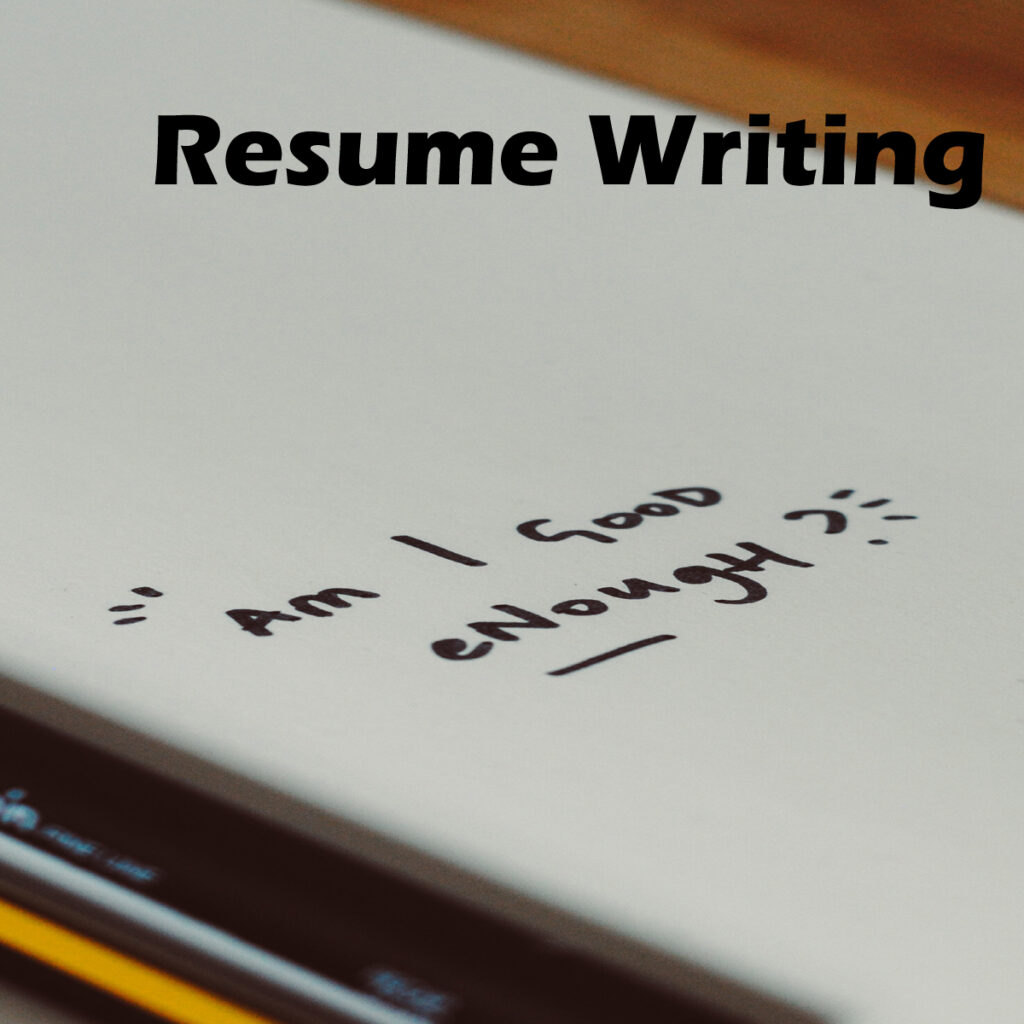 Resume Writing
"Am I Good
enough?"